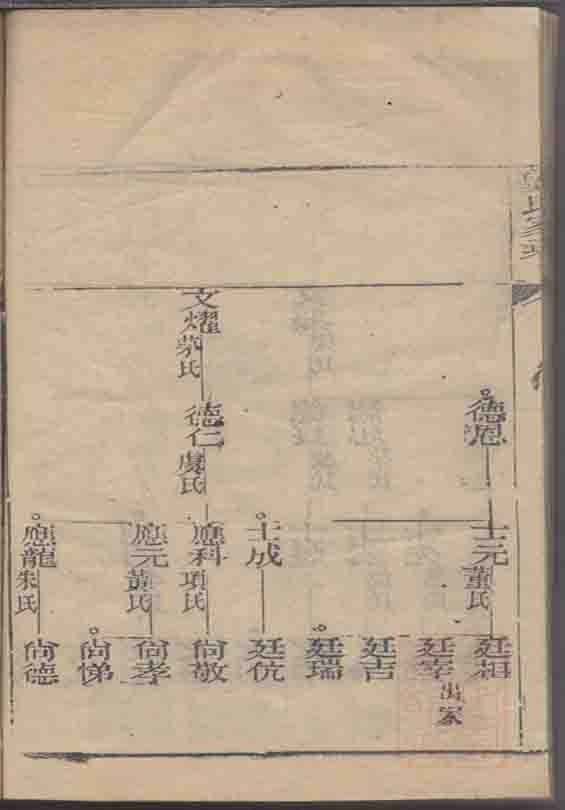 德恩
士元
董氏
廷相
廷宰
出家
廷吉
廷瑞
士成
廷伉
文燿
蔡氏
德仁
虞氏
應科
項氏
尙敬
應元
黃氏
尙孝
尙悌
應龍
朱氏
尙德